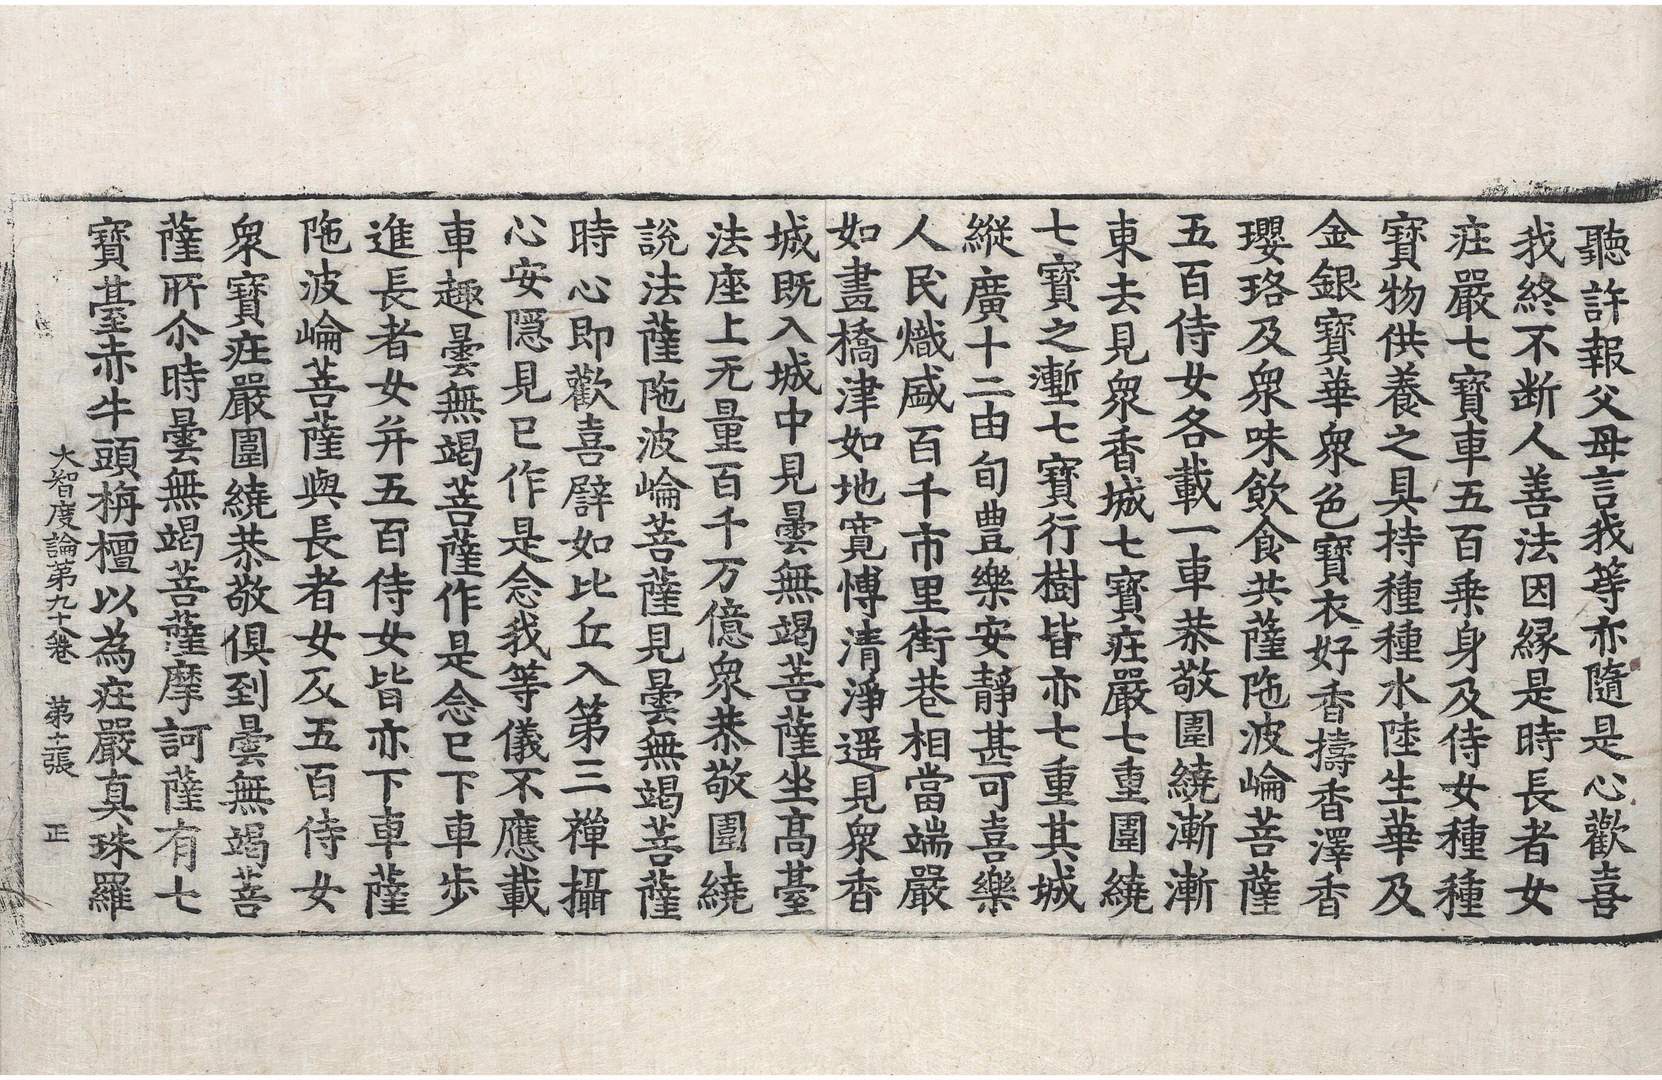 聽許報父母言我等亦隨是心歡喜
我終不斷人善法因緣是時長者女
莊嚴七寶車五百乗身及侍女種種
寶物供養之具持種種水陸生華及
金銀寶華衆色寶衣好香擣香澤香
瓔珞及衆味飲食共薩陁波崘菩薩
五百侍女各載一車恭敬圍繞漸漸
東去見衆香城七寶莊嚴七重圍繞
七寶之塹七寶行樹皆亦七重其城
縱廣十二由旬豊樂安靜甚可喜樂
人民熾盛百千市里街巷相當端嚴
如畫橋津如地寬愽清淨遥見衆香
城既入城中見曇無竭菩薩坐高臺
法座上无量百千万億衆恭敬圍繞
說法薩陁波崘菩薩見曇無竭菩薩
時心即歡喜譬如比丘入第三禪攝
心安隱見已作是念我等儀不應載
車趣曇無竭菩薩作是念已下車步
進長者女并五百侍女皆亦下車薩
陁波崘菩薩與長者女及五百侍女
衆寶莊嚴圍繞恭敬俱到曇無竭菩
薩所尒時曇無竭菩薩摩訶薩有七
寶臺赤牛頭栴檀以為莊嚴真珠羅
大智度論第九十八卷　第十二張　正